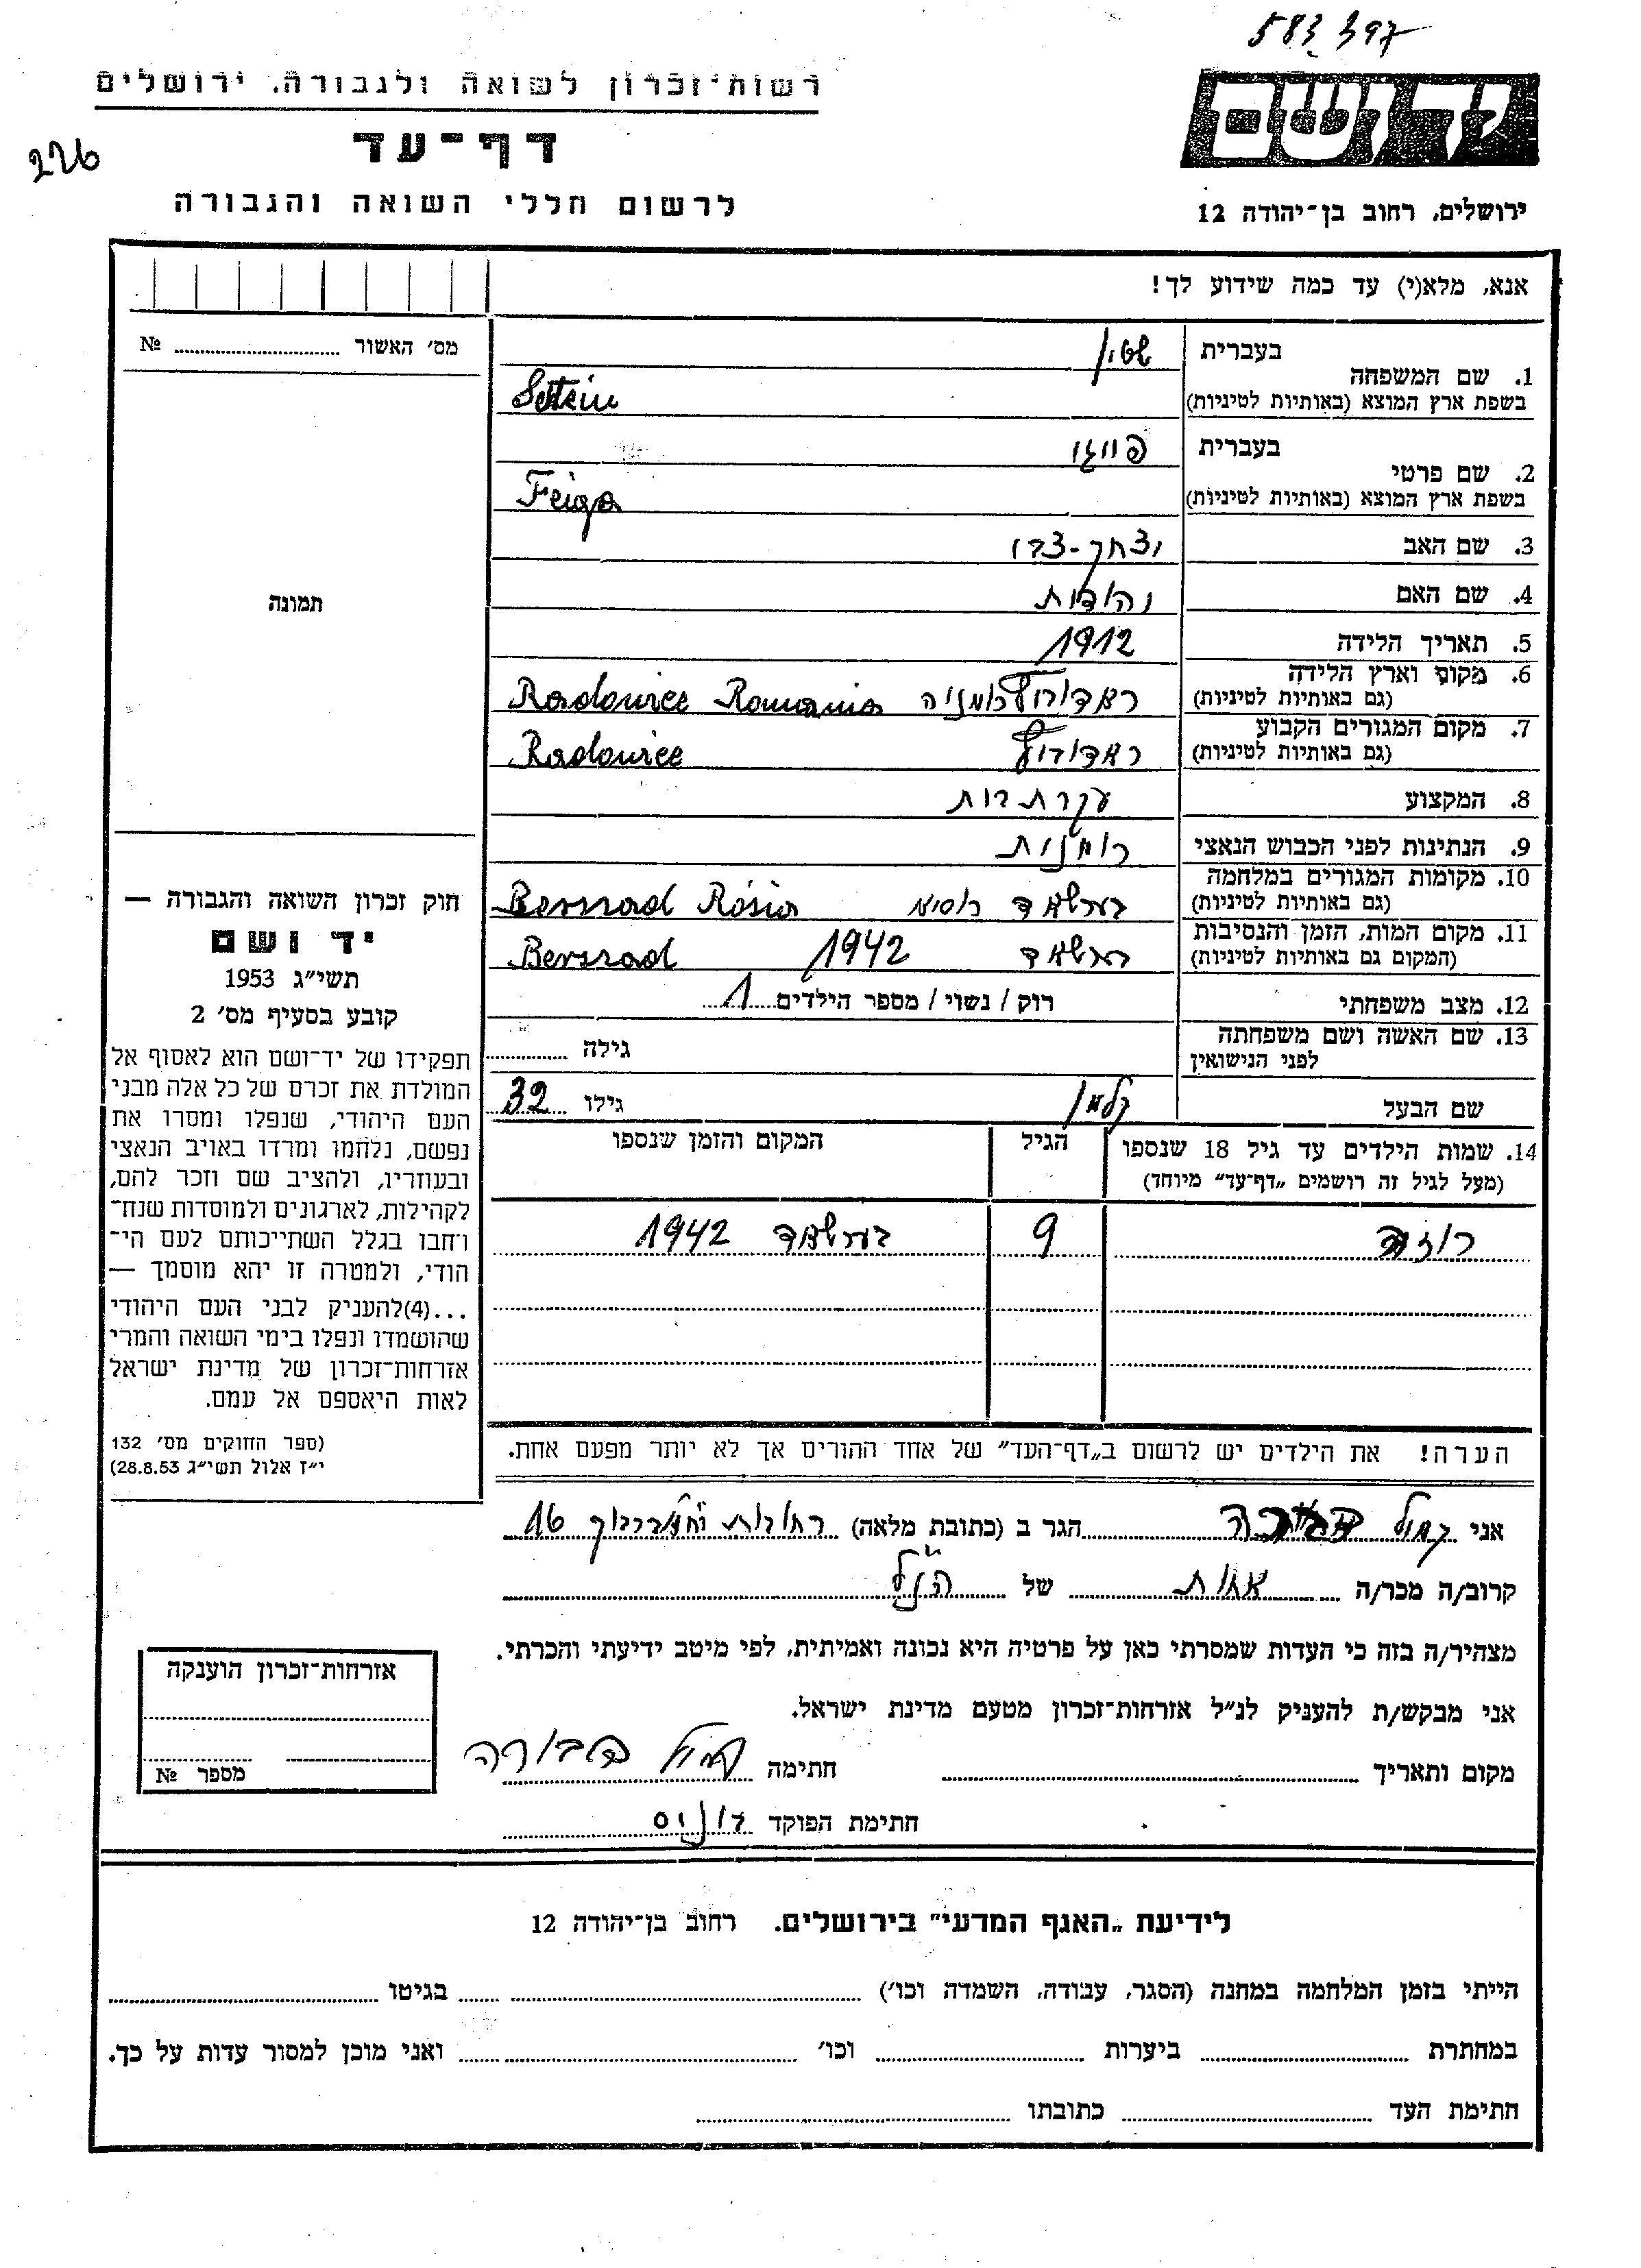 583 397
רשות־זכרון לשואה ולגבורה, ירושלים
דף־עד
226
לרשום חללי השואה והגבורה
ידושם
ירושלים, רחוב בן־יהודה 12
אנא, מלא(י) עד כמה שידוע לך!
מס׳ האשור № 
בעברית שטין
1. שם המשפחה
בשפת ארץ המוצא (באותיות לטיניות) Sttein
בעברית פייגי
2. שם פרטי
בשפת ארץ המוצא (באותיות לטיניות) Feiga
3. שם האב יצחק-צבי
4. שם האם יהודית
5. תאריך הלידה 1912
6. מקום וארץ הלידה
(גם באותיות לטיניות) ראדוץ רומניה Radowice Romania
7. מקום המגורים הקבוע
(גם באותיות לטיניות) Radowice
8. המקצוע עקרת בית
9. הנתינות לפני הכבוש הנאצי רומנית
10. מקומות המגורים במלחמה
(גם באותיות לטיניות) ברשאד רוסיא Berszad Rosia
11. מקום המות, הזמן והנסיבות
(המקום גם באותיות לטיניות) ברשאד 1942 Berszad
12. מצב משפחתי רוק / נשוי / מספר הילדים 1
13. שם האשה ושם משפחתה
לפני הנישואין גילה
שם הבעל קלמן גילו 32
14. שמות הילדים עד גיל 18 שנספו הגיל המקום והזמן שנספו
(מעל לגיל זה רושמים „דף־עד״ מיוחד)
רוזה 9 ברשאד 1942
הערה! את הילדים יש לרשום ב„דף־העד״ של אחד ההורים אך לא יותר מפעם אחת.
תמונה
חוק זכרון השואה והגבורה —
יד ושם
תשי״ג 1953
קובע בסעיף מס׳ 2
תפקידו של יד־ושם הוא לאסוף אל
המולדת את זכרם של כל אלה מבני
העם היהודי, שנפלו ומסרו את
נפשם, נלחמו ומרדו באויב הנאצי
ובעוזריו, ולהציב שם וזכר להם,
לקהילות, לארגונים ולמוסדות שנח־
רבו בגלל השתייכותם לעם הי־
הודי, ולמטרה זו יהא מוסמך —
...(4)להעניק לבני העם היהודי
שהושמדו ונפלו בימי השואה והמרי
אזרחות־זכרון של מדינת ישראל
לאות היאספם אל עמם.
(ספר החוקים מס׳ 132
י״ז אלול תשי״ג 28.8.53)
אני דבורה הגר ב (כתובת מלאה) רחובות 16
קרוב/ה מכר/ה אחות של הנ״ל
מצהיר/ה בזה כי העדות שמסרתי כאן על פרטיה היא נכונה ואמיתית, לפי מיטב ידיעתי והכרתי.
אני מבקש/ת להעניק לנ״ל אזרחות־זכרון מטעם מדינת ישראל.
מקום ותאריך חתימה דבורה
חתימת הפוקד
אזרחות־זכרון הוענקה
מספר №
לידיעת „האגף המדעי״ בירושלים. רחוב בן־יהודה 12
הייתי בזמן המלחמה במחנה (הסגר, עבודה, השמדה וכו׳) בגיטו
במחתרת ביערות וכו׳ ואני מוכן למסור עדות על כך.
חתימת העד כתובתו